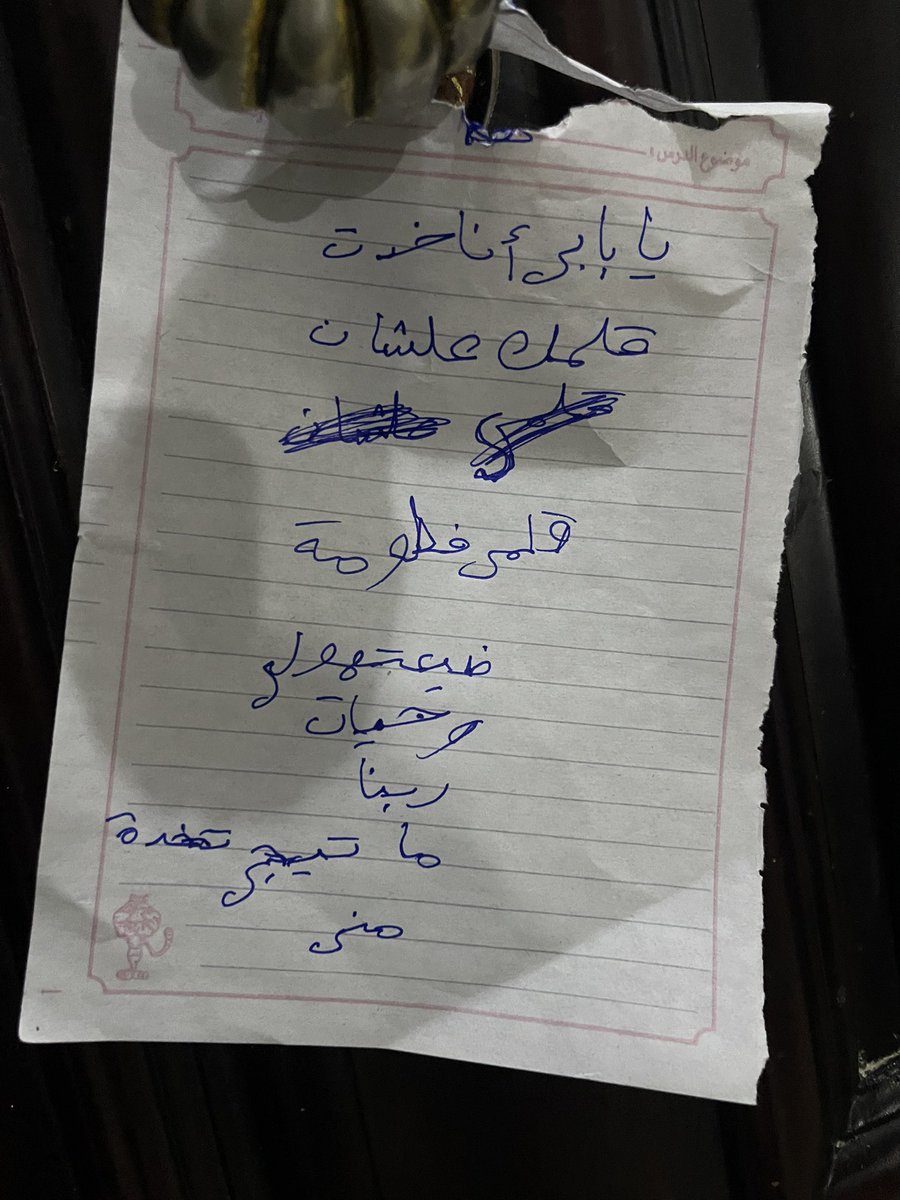 موضوع الدرس :
يا بابي أنا خدت
قلمك علشان
قلمي فطومة
ضيعتهولي
وحيات
ربنا
ما تيجي تخدة
مني